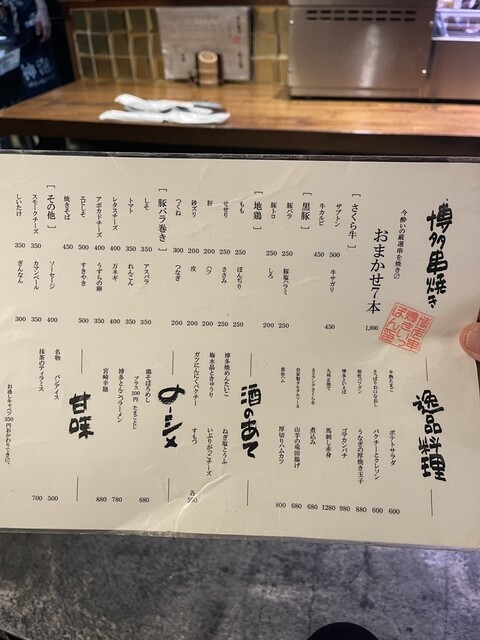 博多串焼き
今酔いの厳選串を焼き〼
おまかせ7本 1,800
[さくら牛]
ザブトン 500 牛サガリ 450
牛カルビ 450
[黒豚]
豚バラ 250 豚塩ハラミ 250
豚トロ 250 しろ 200
[地鶏]
もも 250 ぼんちり 250
せせり 250 ささみ 250
肝 200 ハツ 200
砂ズリ 200 皮 200
つくね 300 つなぎ 200
[豚バラ巻き]
しそ 350 アスパラ 350
トマト 350 れんこん 350
レタスチーズ 400 万ネギ 400
アボカドチーズ 400 うずらの卵 350
えびしそ 500 すきやき 500
焼きそば 450
[その他]
ソーセージ 350
スモークチーズ 350 カマンベール 400
しいたけ 350 ぎんなん 300
逸品料理
ポテトサラダ 600
パクチーとクレソン 600
うなぎの厚焼き玉子 880
博多といえば
ゴマカンパチ 980
九州王道で
馬刺し赤身 1280
煮込み 680
山芋の竜田揚げ 680
厚切りハムカツ 800
酒のあて
博多焼めんたいこ ねぎ塩とうふ
梅水晶ときゅうり いぶりがっこチーズ
ガツにんにくパクチー すもつ
各550
のーシメ
鶏そぼろめし 680
プラス100円 たまごとじ
博多とんこつラーメン 780
宮崎辛麺 880
甘味
名物 パンアイス 500
抹茶のアイワース 700
お通しキャベツ350円おかわりできい。